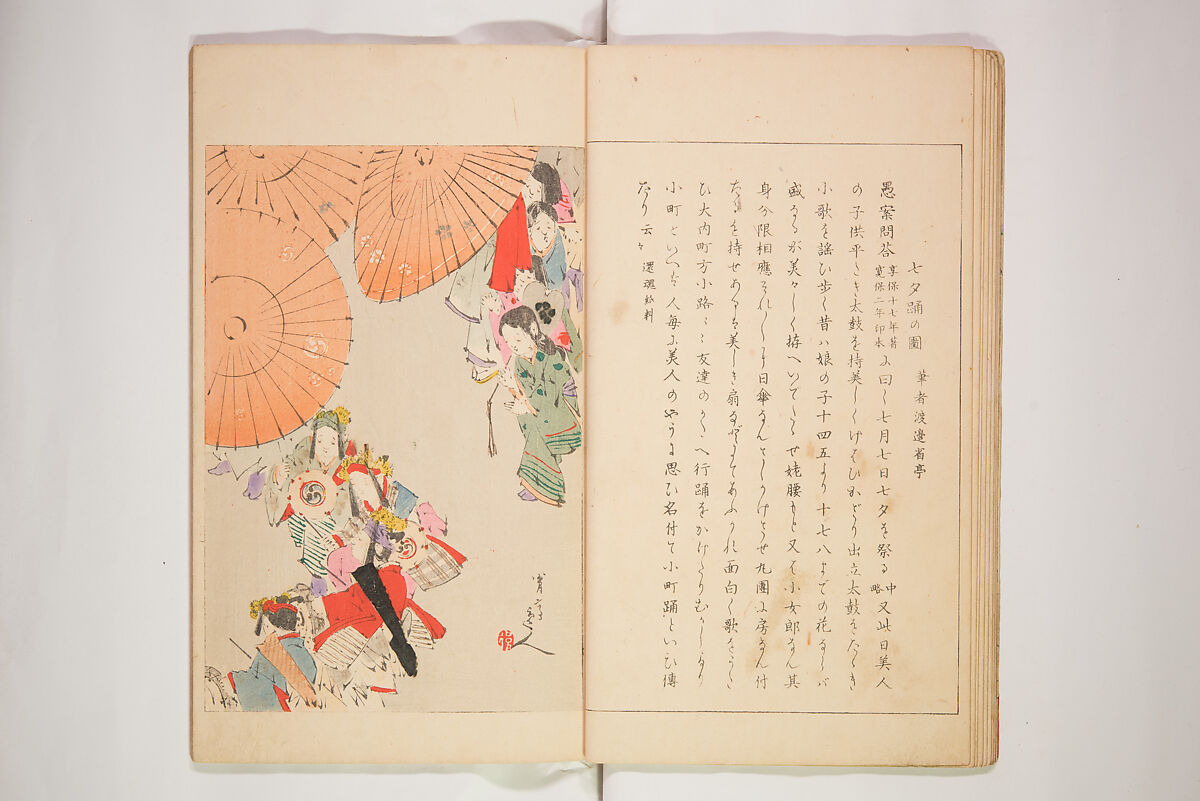 七夕踊の圖　筆者渡邊省亭
愚案問答 享保十七年著 寛保二年印本 に曰く七月七日七夕を祭る 中略 又此日美人
の子供平たき太鼓を持美しくけはひかざり出立太鼓をたゝき
小歌を謡ひ歩く昔ハ娘の子十四五より十七八までの花ならバ
盛ならが美々しく拵へいでたゝせ姥腰もと又は小女郎なん其
身分限相應それ〳〵に日傘なんさしかけさせ丸團に房なん付
たるを持せあるは美しき扇などにてあふがれ面白く歌をうた
ひ大内町方小路々々友達のかたへ行踊をかけたりむかしより
小町といへば人毎に美人のやうに思ひ名付て小町踊といひ傳
たり云々　還魂紙料
省亭